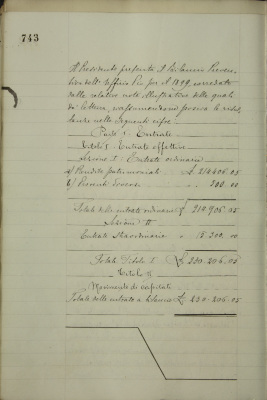 743
Il Presidente presenta il bilancio Preven-
tivo dell'Ufficio Pio per il 1899, corredato
dalle relative note illustrative delle quali
dà lettura, riassumendone poscia le risul-
tanze nelle seguenti cifre:
Parte I Entrate
Titolo I Entrate effettive
Sezione I Entrate ordinarie
a) Rendite patrimoniali £
b) Proventi diversi " 300.00
Totale delle entrate ordinarie £
Sezione II
Entrate Straordinarie "
Totale Titolo I £ 230.206.05
Titolo II
Movimento di capitali
Totale delle entrate a bilancio £ 230.206.05